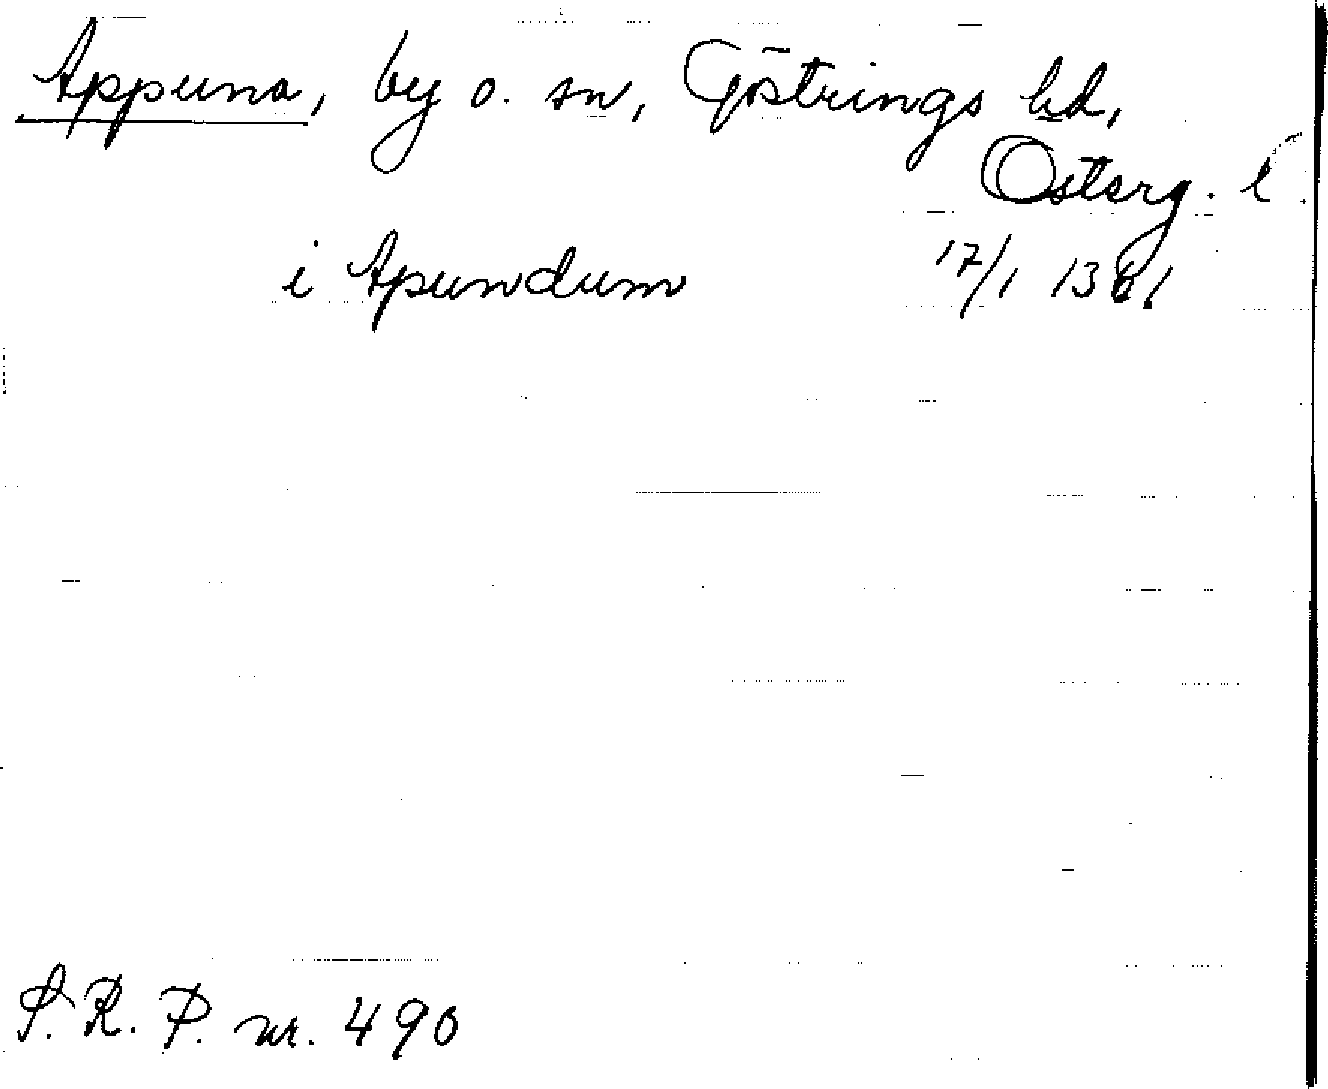 Appuna, by o. sn, Göstrings hd,
Österg. l.
i Apundum 17/1 1361
S.R.P. nr. 490